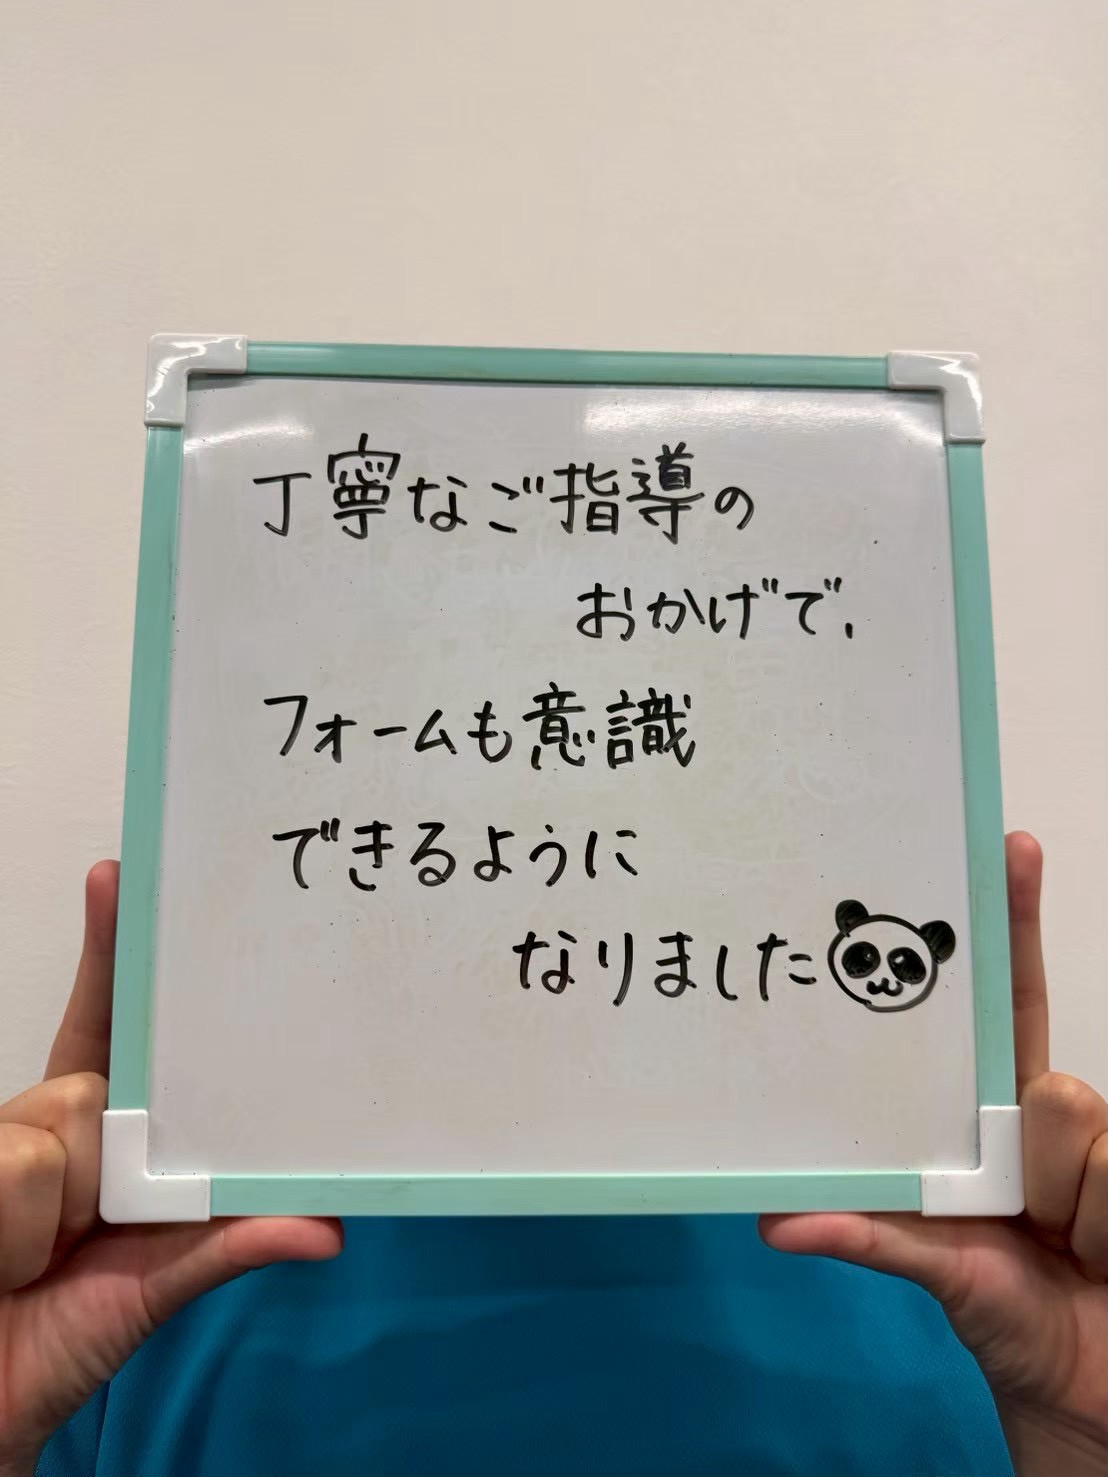 丁寧なご指導の
おかげで、
フォームも意識
できるように
なりました